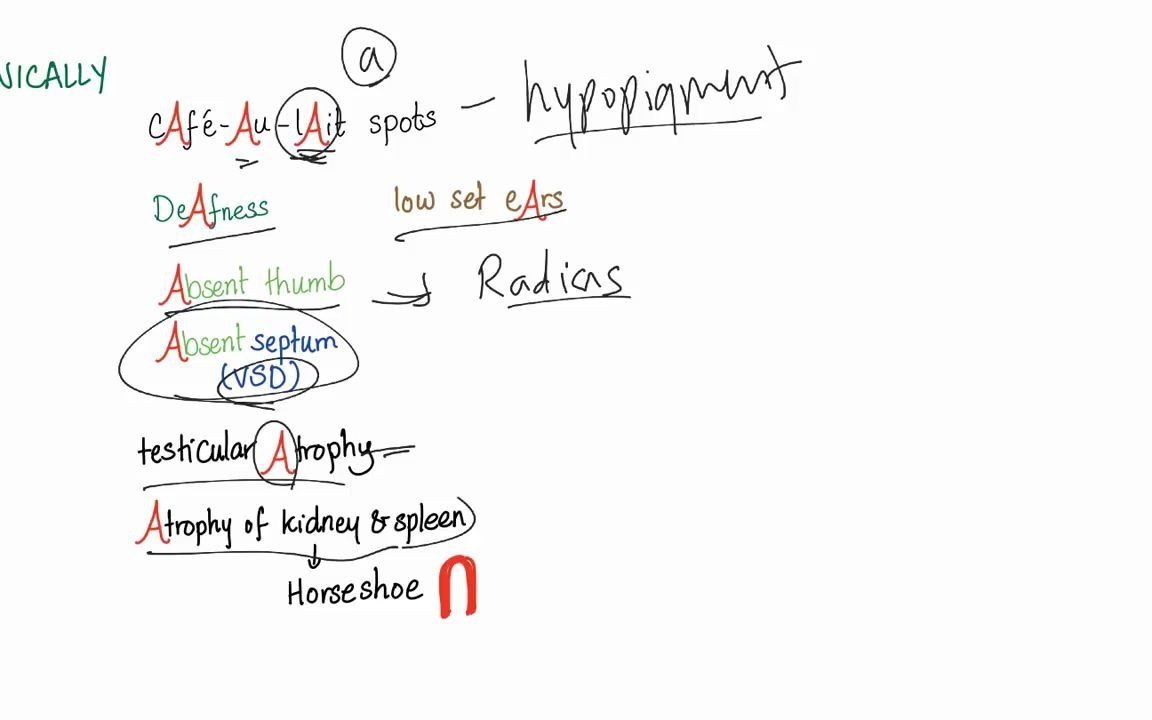 NICALLY
a
cAfé-Au-lAit spots — hypopigment
DeAfness low set eArs
Absent thumb → Radius
Absent septum
(VSD)
testicular Atrophy
Atrophy of kidney & spleen
↓
Horseshoe